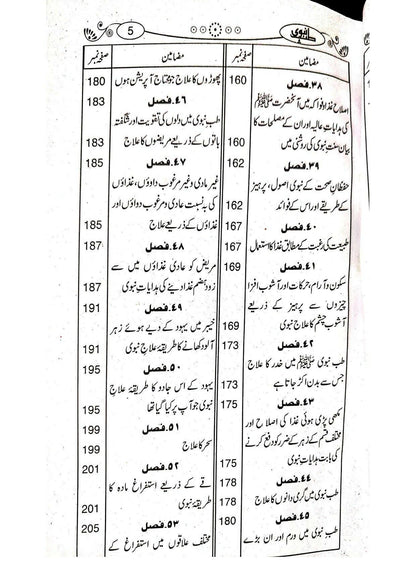 5
نبوی
مضامین صفحہ نمبر
۳۸.فصل 160
اصلاح غذا و فواکہ میں آنحضرت ﷺ
کی ہدایات عالیہ اور ان کے مصلحات کا
بیان سنت نبوی کی روشنی میں
۳۹.فصل 162
حفظانِ صحت کے نبوی اصول، پرہیز
کے طریقے اور اس کے فوائد 162
۴۰.فصل 167
طبیعت کی رغبت کے مطابق غذا کا استعمال 167
۴۱.فصل 169
سکون و آرام، حرکات اور آشوب افزا
چیزوں سے پرہیز کے ذریعے
آشوب چشم کا علاج نبوی 169
۴۲.فصل 173
طب نبوی ﷺ میں خدر کا علاج
جس سے بدن اکڑ جاتا ہے 173
۴۳.فصل 175
مکھی پڑی ہوئی غذا کی اصلاح اور
مختلف قسم کے زہر کے ضرر کو دفع کرنے
کی بابت ہدایات نبوی 175
178
طب نبوی میں گرمی دانوں کا علاج 178
۴۵.فصل 180
طب نبوی میں ورم اور ان بڑے
مضامین صفحہ نمبر
پھوڑوں کا علاج جو محتاج آپریشن ہوں 180
۴۶.فصل 183
طب نبوی میں دلوں کی تقویت اور شگفتہ
باتوں کے ذریعے مریضوں کا علاج 183
۴۷.فصل 185
غیر عادی وغیر مرغوب داوؤں، غذاؤں
کی بہ نسبت عادی و مرغوب دواؤں اور
غذاؤں کے ذریعے علاج 185
۴۸.فصل 187
مریض کو عادی غذاؤں میں سے
زود ہضم غذا دینے کی ہدایاتِ نبوی 187
۴۹.فصل 191
خیبر میں یہود کے دیے ہوئے زہر
آلود کھانے کا طریقۂ علاج نبوی 191
۵۰.فصل 195
یہود کے اس جادو کا طریقۂ علاجِ
نبوی جو آپ پر کیا گیا تھا 195
۵۱.فصل 199
سحر کا علاج 199
۵۲.فصل 201
قے کے ذریعے استفراغ مادہ کا
طریقۂ نبوی 201
۵۳.فصل 205
مختلف علاقوں میں استفراغ کے